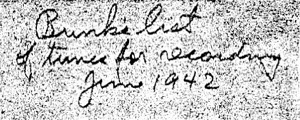 Bunks list
of tunes for recording
June 1942